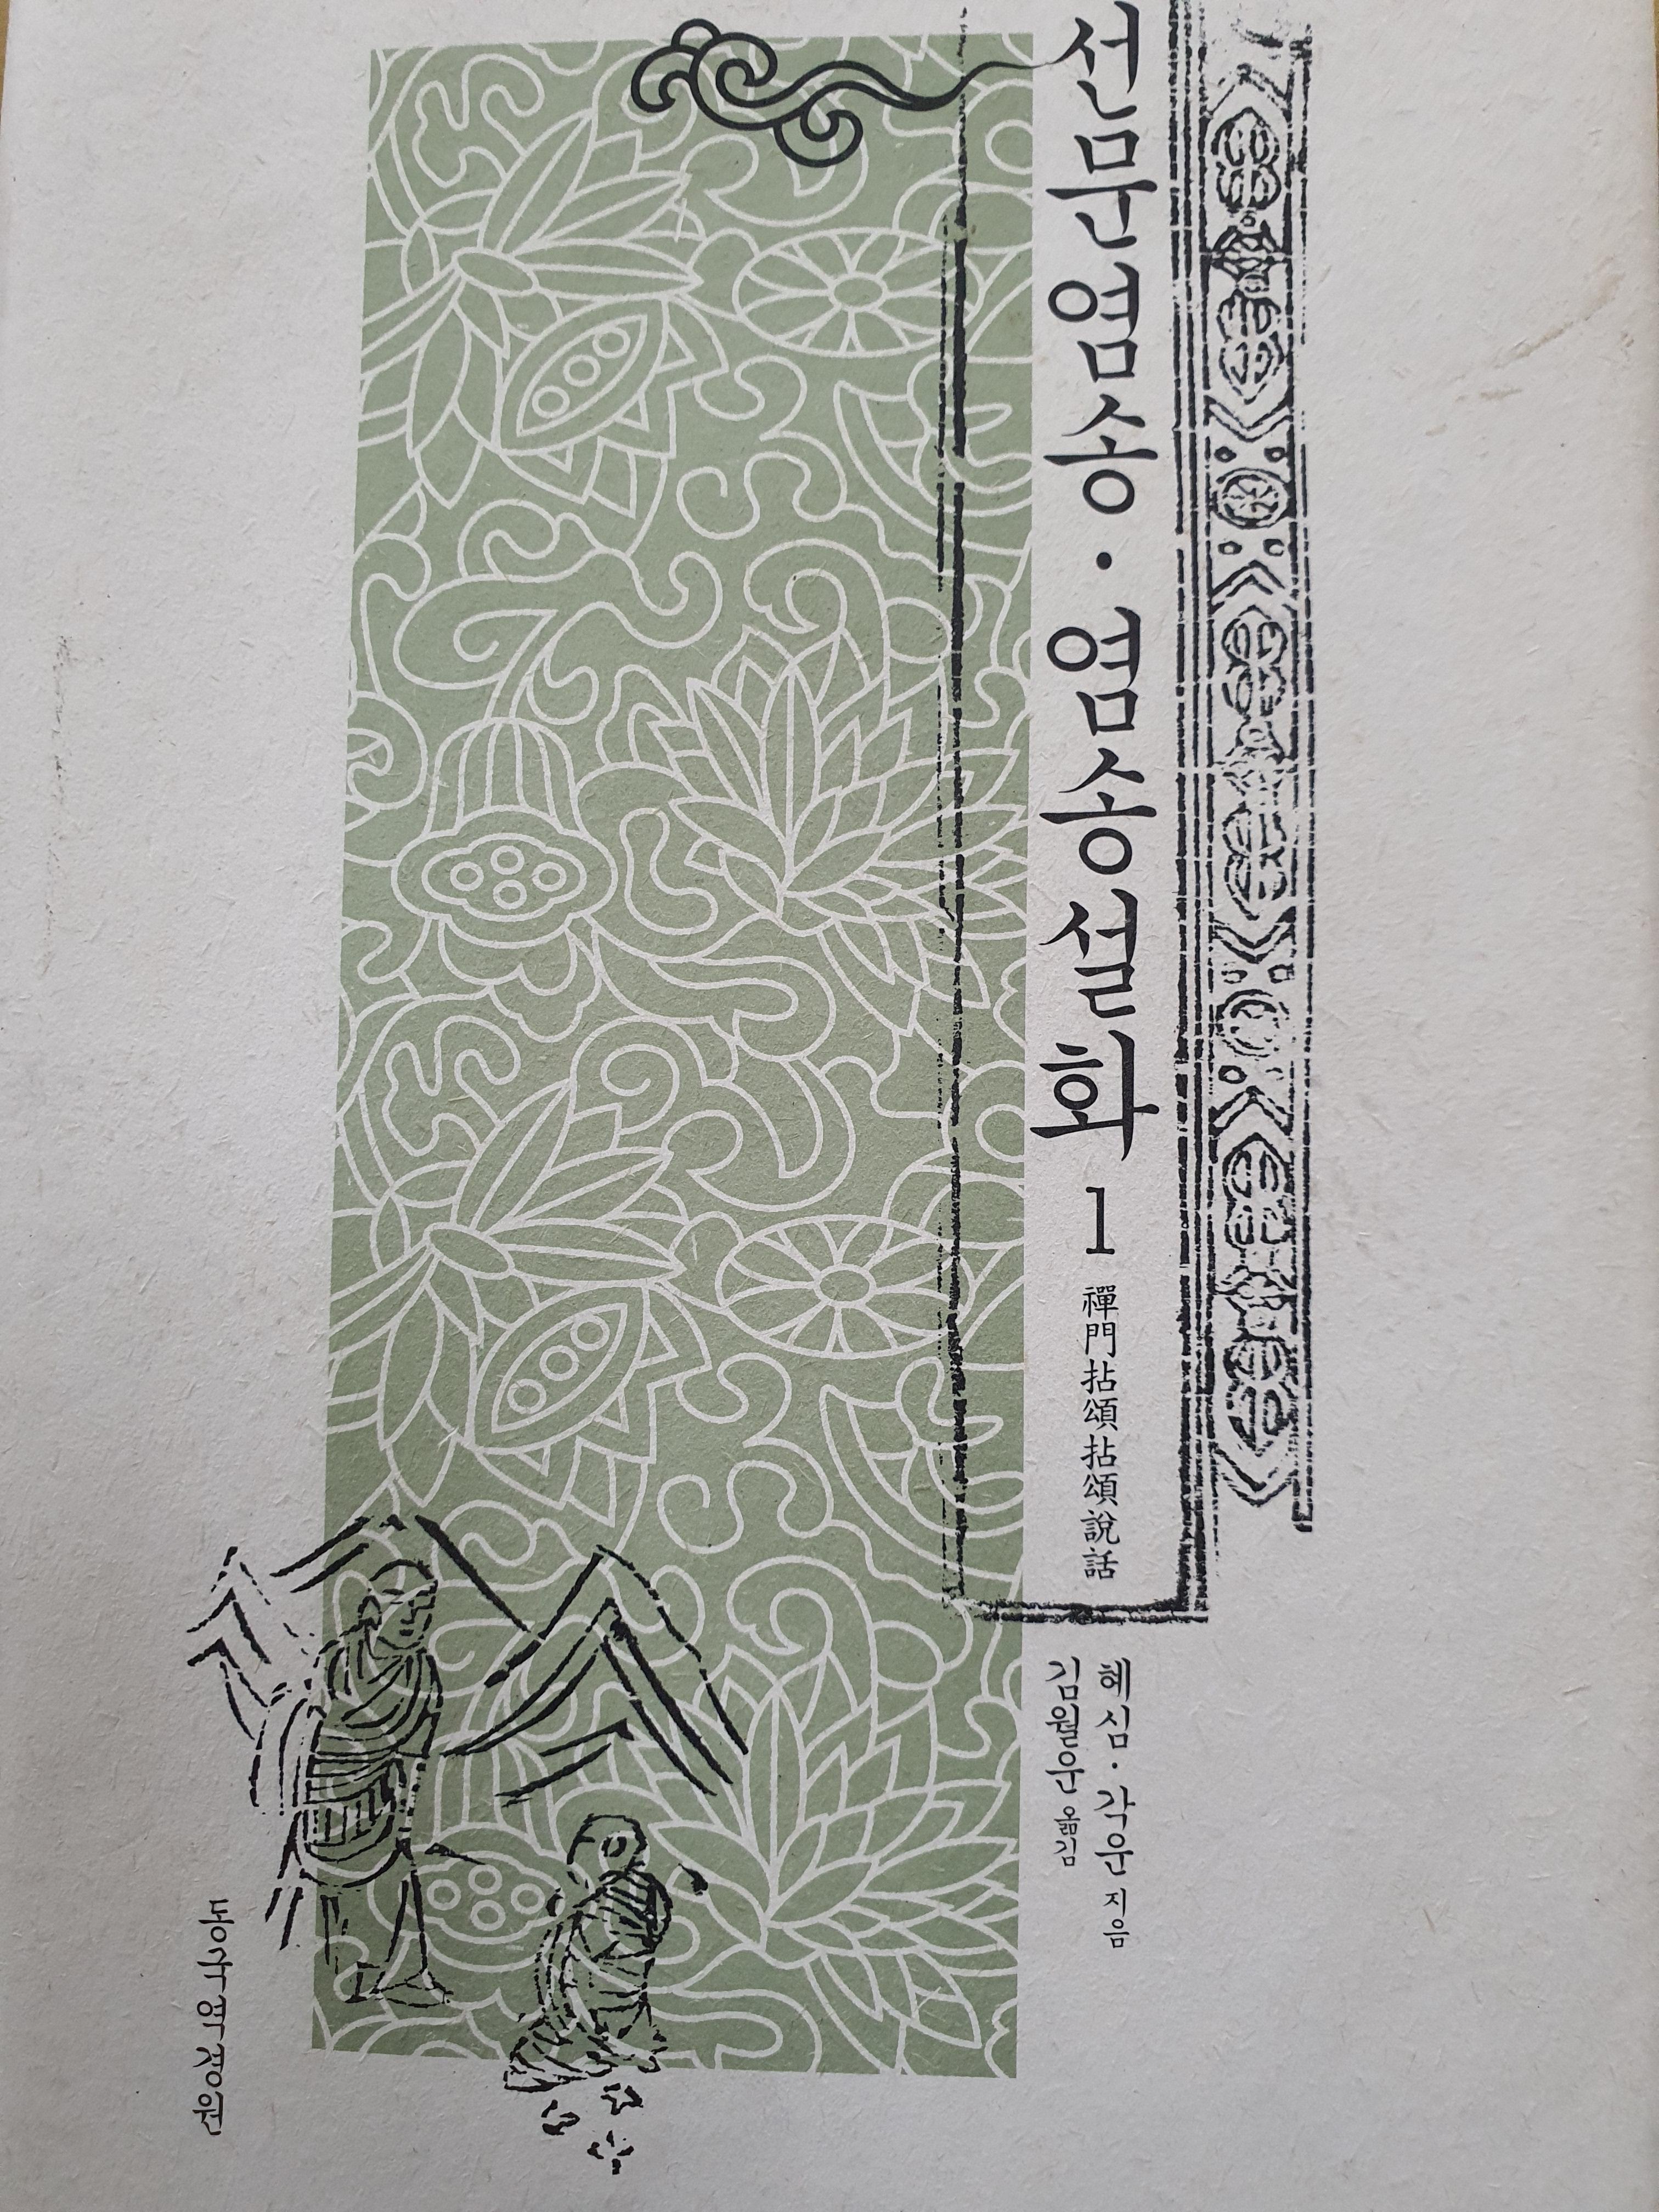 선문염송·염송설화 1 禪門拈頌拈頌說話
혜심·각운 지음
김월운 옮김
동국역경원